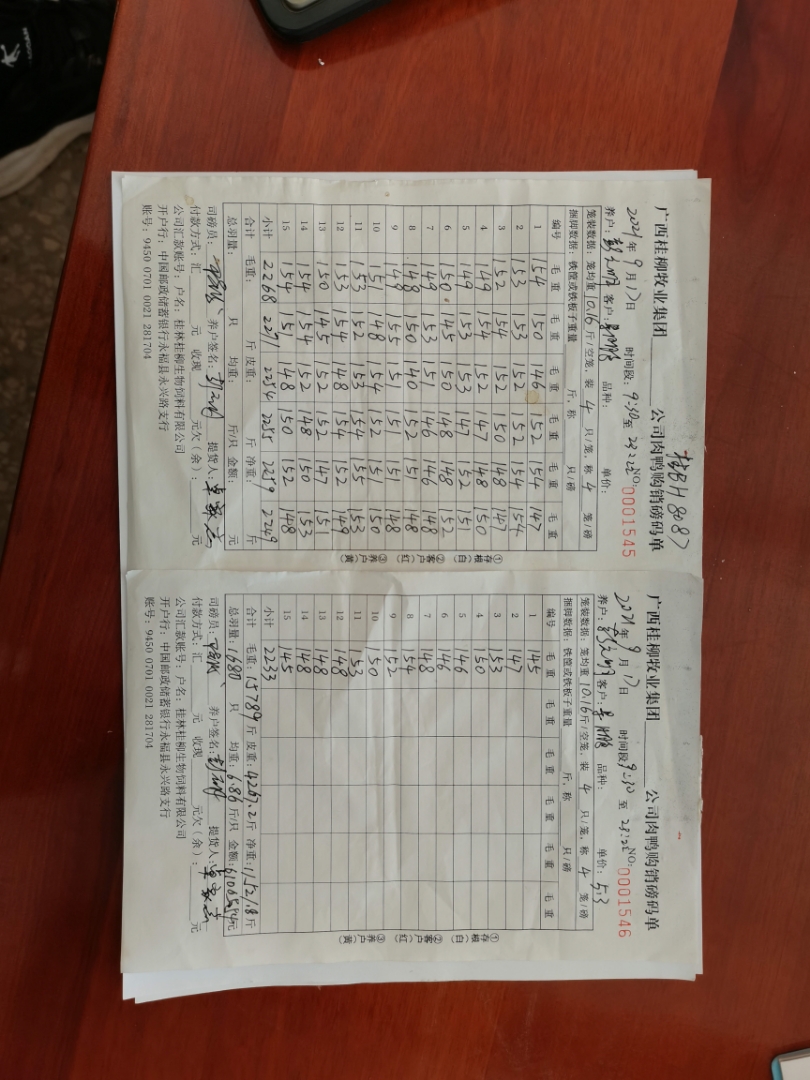 桂BH8087
广西桂柳牧业集团 公司肉鸭购销磅码单
2021年9月17日 时间段:9:30至23:25 NO:0001545
养户: 客户: 品种: 单价:
笼装数据:笼均重10.16斤/空笼,装4只/笼,称4笼/磅
捆脚数据:铁筐或铁板子重量 斤,称 只/磅
编号 毛重 毛重 毛重 毛重 毛重 毛重
1 154 150 146 152 154 147
2 153 153 152 152 154 154
3 152 154 152 150 148 147
4 149 154 152 147 148 150
5 149 153 153 147 152 151
6 150 145 150 148 148 152
7 149 153 151 146 146 148
8 148 150 140 152 151 148
9 149 155 151 151 151 148
10 151 148 154 152 151 150
11 153 152 153 154 155 153
12 153 154 148 154 152 149
13 150 145 152 152 147 151
14 154 154 152 148 150 153
15 154 151 148 150 152 148
小计 2268 2271 2254 2255 2259 2249
合计 毛重: 斤 皮重: 斤 净重: 斤
总羽量: 只 均重: 斤/只 金额: 元
司磅员: 养户签名: 提货人:
付款方式:汇 元 收现 元欠(余): 元
公司汇款账号:户名:桂林桂柳生物饲料有限公司
开户行:中国邮政储蓄银行永福县永兴路支行
账号:9450 0701 0021 281704
①存根(白) ②客户(红) ③养户(黄)
广西桂柳牧业集团 公司肉鸭购销磅码单
2021年9月17日 时间段9:30至23:25 NO:0001546
养户: 客户: 品种: 单价:5.3
笼装数据:笼均重10.16斤/空笼,装4只/笼,称4笼/磅
捆脚数据:铁筐或铁板子重量 斤,称 只/磅
编号 毛重 毛重 毛重 毛重 毛重 毛重
1 145
2 147
3 153
4 150
5 146
6 146
7 148
8 154
9 152
10 150
11 153
12 148
13 148
14 148
15 145
小计 2233
合计 毛重:15789斤 皮重:4267.2斤 净重:11521.8斤
总羽量:1680只 均重:6.86斤/只 金额:61065.54元
司磅员: 养户签名: 提货人:
付款方式:汇 元 收现 元欠(余): 元
公司汇款账号:户名:桂林桂柳生物饲料有限公司
开户行:中国邮政储蓄银行永福县永兴路支行
账号:9450 0701 0021 281704
①存根(白) ②客户(红) ③养户(黄)